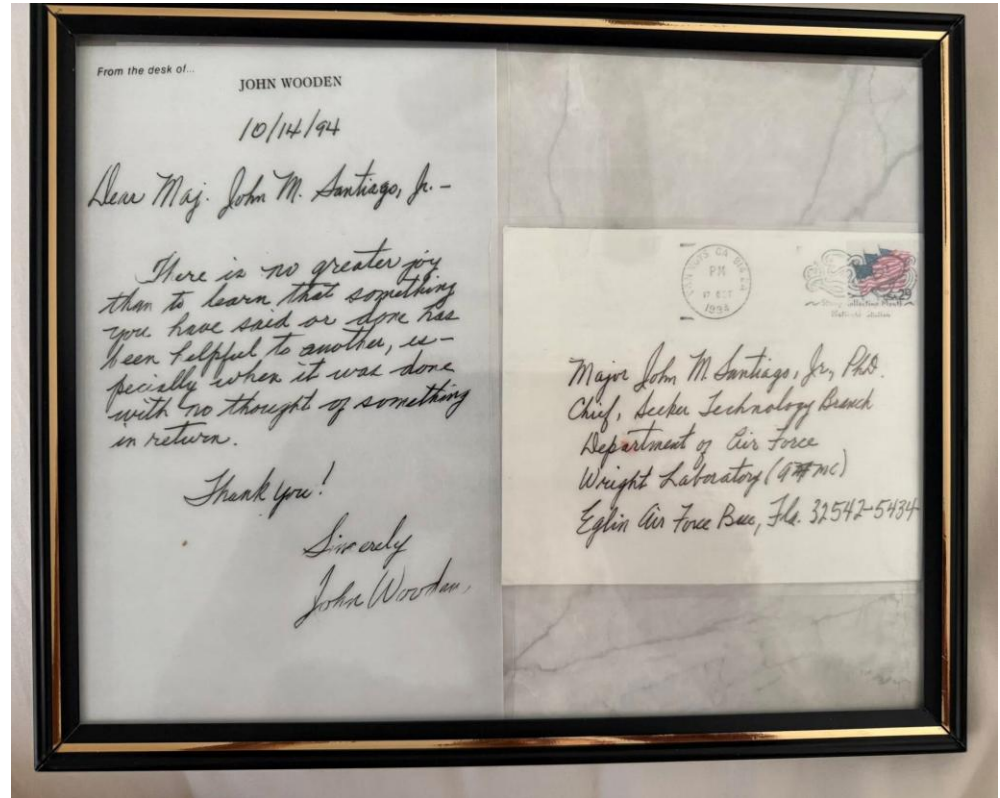 From the desk of...
JOHN WOODEN
10/14/94
Dear Maj. John M. Santiago, Jr. –
There is no greater joy
than to learn that something
you have said or done has
been helpful to another, es–
pecially when it was done
with no thought of something
in return.
Thank you!
Sincerely
John Wooden
VAN NUYS CA
PM
17 OCT
1994
29
Major John M. Santiago, Jr., PhD.
Chief, Seeker Technology Branch
Department of Air Force
Wright Laboratory
Eglin Air Force Base, Fla. 32542-5434